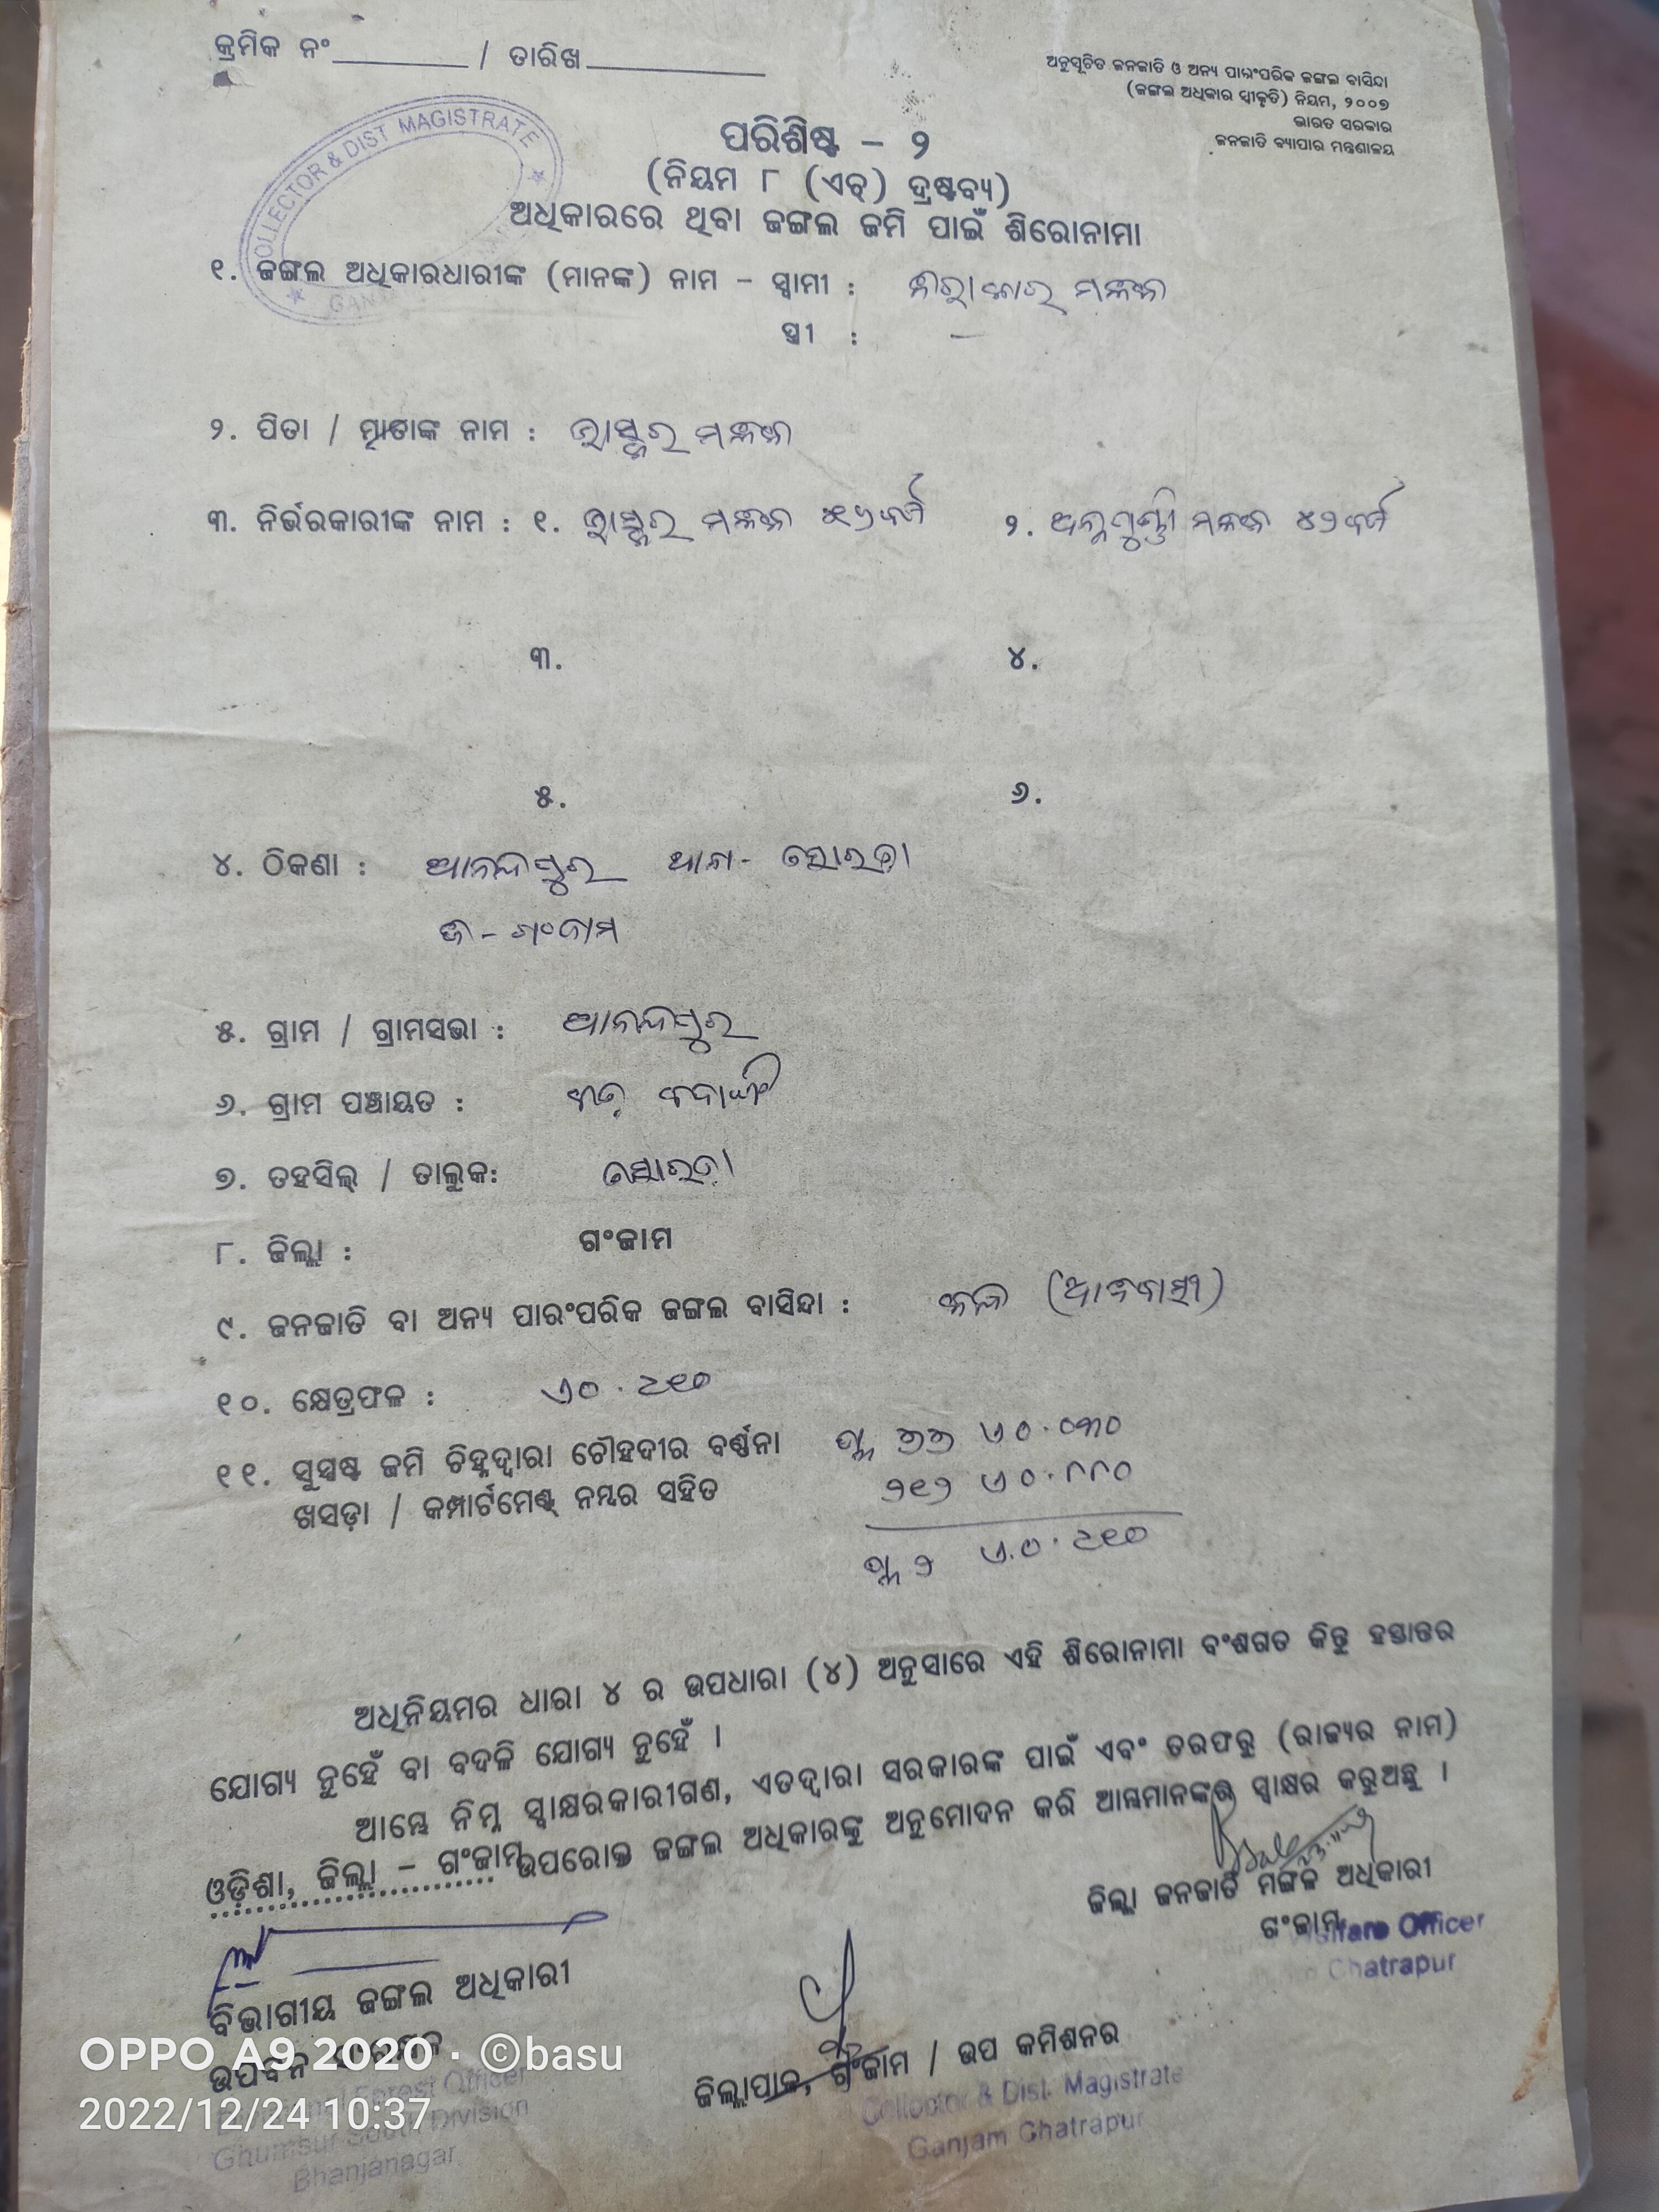 କ୍ରମିକ ନଂ ________ / ତାରିଖ __________
ଅନୁସୂଚିତ ଜନଜାତି ଓ ଅନ୍ୟ ପାରଂପରିକ ଜଙ୍ଗଲ ବାସିନ୍ଦା
(ଜଙ୍ଗଲ ଅଧିକାର ସ୍ୱୀକୃତି) ନିୟମ, ୨୦୦୭
ଭାରତ ସରକାର
ଜନଜାତି ବ୍ୟାପାର ମନ୍ତ୍ରଣାଳୟ
COLLECTOR & DIST MAGISTRATE
ପରିଶିଷ୍ଟ – ୨
(ନିୟମ ୮ (ଏଚ୍) ଦ୍ରଷ୍ଟବ୍ୟ)
ଅଧିକାରରେ ଥିବା ଜଙ୍ଗଲ ଜମି ପାଇଁ ଶିରୋନାମା
୧. ଜଙ୍ଗଲ ଅଧିକାରଧାରୀଙ୍କ (ମାନଙ୍କ) ନାମ – ସ୍ୱାମୀ : ନିରାକାର ମଳିକ
ସ୍ତ୍ରୀ : –
୨. ପିତା / ମାତାଙ୍କ ନାମ : ଭାସ୍କର ମଳିକ
୩. ନିର୍ଭରକାରୀଙ୍କ ନାମ : ୧. ଭାସ୍କର ମଳିକ ବର୍ଷ ୨. ମଳିକ ୪୨ ବର୍ଷ
୩. ୪.
୫. ୬.
୪. ଠିକଣା : ଆନନ୍ଦପୁର ଥାନା- ସୋରଡ଼ା
ଜି - ଗଂଜାମ
୫. ଗ୍ରାମ / ଗ୍ରାମସଭା : ଆନନ୍ଦପୁର
୬. ଗ୍ରାମ ପଞ୍ଚାୟତ :
୭. ତହସିଲ୍ / ତାଲୁକ: ସୋରଡ଼ା
୮. ଜିଲ୍ଲା : ଗଂଜାମ
୯. ଜନଜାତି ବା ଅନ୍ୟ ପାରଂପରିକ ଜଙ୍ଗଲ ବାସିନ୍ଦା : କନ୍ଧ (ଆଦିବାସୀ)
୧୦. କ୍ଷେତ୍ରଫଳ : ଏ୦.୯୧୦
୧୧. ସୁସ୍ପଷ୍ଟ ଜମି ଚିହ୍ନଦ୍ୱାରା ଚୌହଦୀର ବର୍ଣ୍ଣନା ପ୍ଲ ୭୭ ଏ୦.୦୩୦
ଖସଡ଼ା / କମ୍ପାର୍ଟମେଣ୍ଟ୍ ନମ୍ବର ସହିତ ୨୧୨ ଏ୦.୮୮୦
ପ୍ଲ ୨ ଏ.୦.୯୧୦
ଅଧିନିୟମର ଧାରା ୪ ର ଉପଧାରା (୪) ଅନୁସାରେ ଏହି ଶିରୋନାମା ବଂଶଗତ କିନ୍ତୁ ହସ୍ତାନ୍ତର
ଯୋଗ୍ୟ ନୁହେଁ ବା ବଦଳି ଯୋଗ୍ୟ ନୁହେଁ ।
ଆମ୍ଭେ ନିମ୍ନ ସ୍ୱାକ୍ଷରକାରୀଗଣ, ଏତଦ୍ୱାରା ସରକାରଙ୍କ ପାଇଁ ଏବଂ ତରଫରୁ (ରାଜ୍ୟର ନାମ)
ଓଡ଼ିଶା, ଜିଲ୍ଲା – ଗଂଜାମ ଉପରୋକ୍ତ ଜଙ୍ଗଲ ଅଧିକାରଙ୍କୁ ଅନୁମୋଦନ କରି ଆମ୍ଭମାନଙ୍କର ସ୍ୱାକ୍ଷର କରୁଅଛୁ ।
ଜିଲ୍ଲା ଜନଜାତି ମଙ୍ଗଳ ଅଧିକାରୀ
ଗଂଜାମ
Welfare Officer
Chatrapur
ବିଭାଗୀୟ ଜଙ୍ଗଲ ଅଧିକାରୀ
ଉପବନ
Forest Officer
Ghumsur South Division
Bhanjanagar
ଜିଲ୍ଲାପାଳ, ଗଂଜାମ / ଉପ କମିଶନର
Collector & Dist. Magistrate
Ganjam Chatrapur
OPPO A9 2020 · ©basu
2022/12/24 10:37